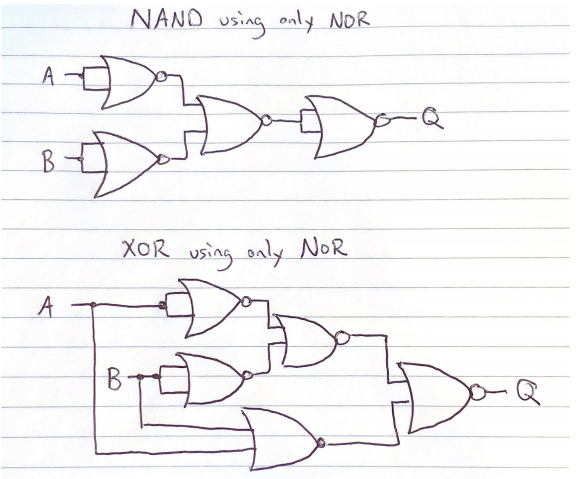 NAND using only NOR
A
B
Q
XOR using only NOR
A
B
Q